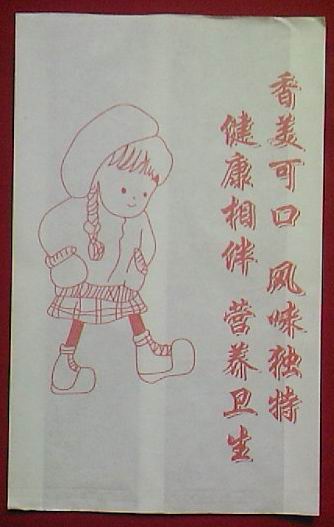 香美可口 风味独特
健康相伴 营养卫生